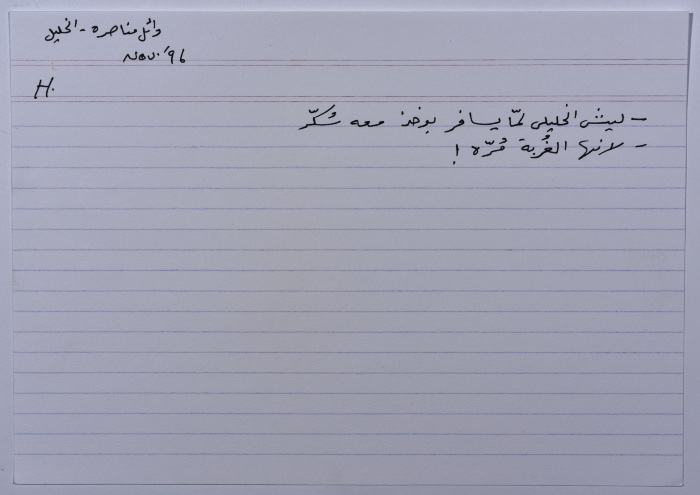 وائل مناصره - الخليل
Nov. '96
H.
- ليش الخليلي لمّا يسافر بوخذ معه سُكّر
- لانها الغُربة مُرّه !